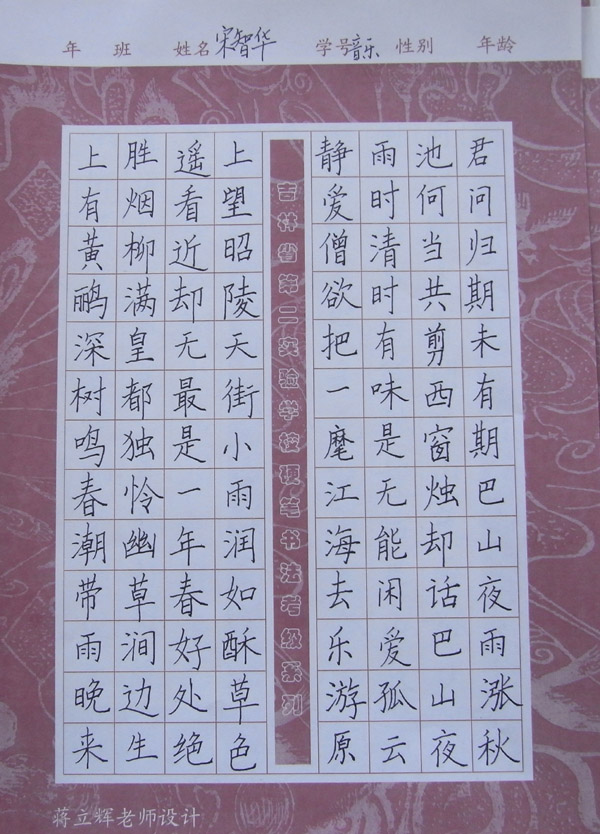 年 班 姓名宋智华 学号音乐 性别 年龄
君问归期未有期巴山夜雨涨秋
池何当共剪西窗烛却话巴山夜
雨时清时有味是无能闲爱孤云
静爱僧欲把一麾江海去乐游原
吉林省第二实验学校硬笔书法考级系列
上望昭陵天街小雨润如酥草色
遥看近却无最是一年春好处绝
胜烟柳满皇都独怜幽草涧边生
上有黄鹂深树鸣春潮带雨晚来
蒋立辉老师设计